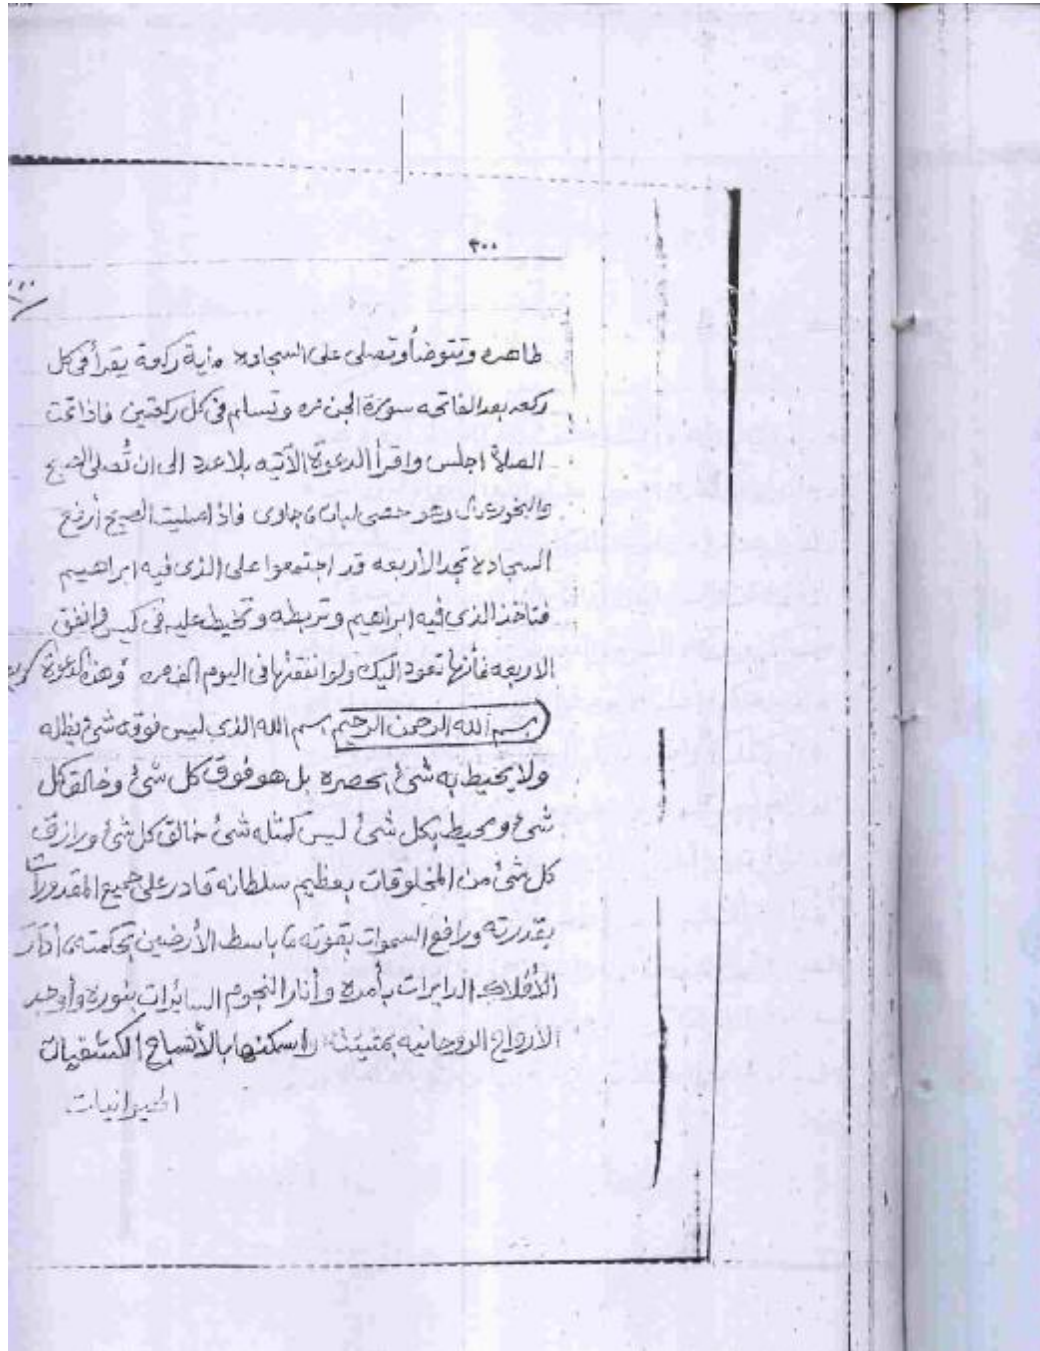 ٣٠٠
طاهره وتتوضأ وتصلى على السجاده ماية ركعة يقرأ فى كل
ركعه بعد الفاتحه سورة الجن مره وتسلم فى كل ركعتين فاذا تمت
الصلاة اجلس واقرأ الدعوة الآتيه بلا عدد الى ان تُصلى الصبح
والبخور وهو حصى لبان جاوى فاذا صليت الصبح أرفع
السجاده تجد الأربعه قد اجتمعوا على الذى فيه ابراهيم
فتاخذ الذي فيه ابراهيم وتربطه وتخيط عليه فى كيس وانفق
الاربعه فأنها تعود اليك ولو انفقتها فى اليوم الف مره وهذه الدعوة
بسم الله الرحمن الرحيم بسم الله الذى ليس فوقه شئ يظله
ولا يحيط به شئ يحصره بل هو فوق كل شئ وخالق كل
شئ ومحيط بكل شئ ليس كمثله شئ خالق كل شئ ورازق
كل شئ من المخلوقات بعظيم سلطانه قادر على جميع المقدورات
بقدرته ورافع السموات بقوته باسط الأرضين بحكمته أدار
الأفلاك الدايرات بأمره وأنار النجوم السائرات بنوره وأوجد
الارواح الروحانيه بمشيئته اسكنها بالأشباح
الحيوانيات